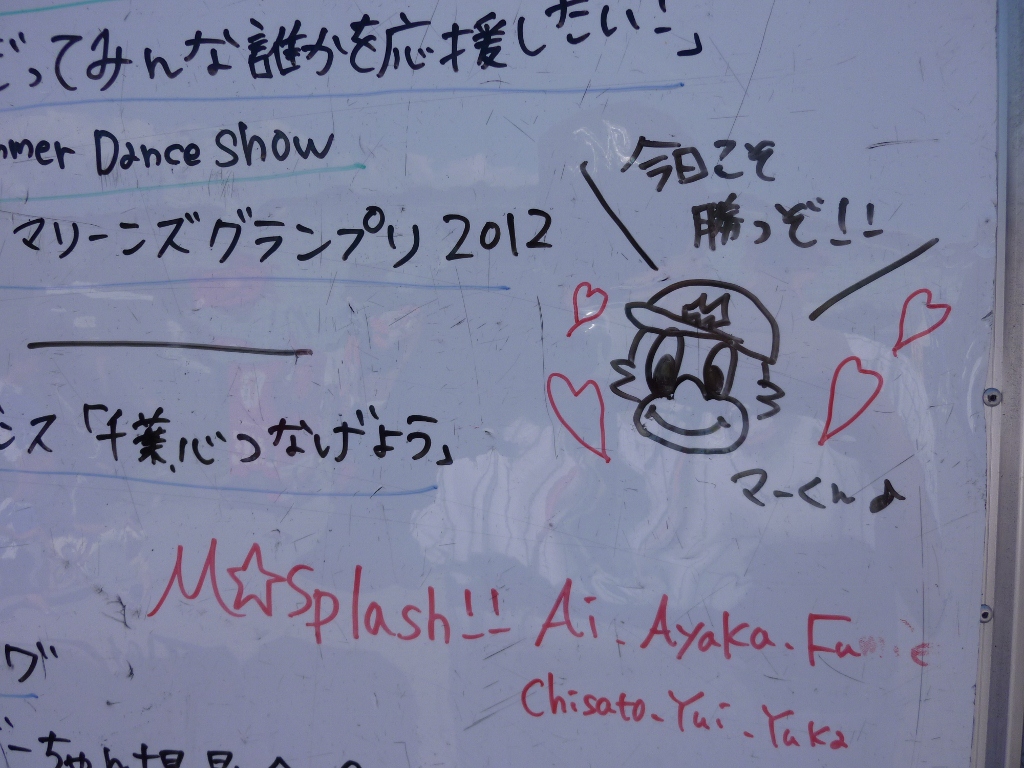 だってみんな誰かを応援したい！」
mmer Dance Show
今日こそ
勝つぞ！！
マリーンズグランプリ 2012
「千葉、心つなげよう」
マーくん♪
M☆Splash!! Ai. Ayaka.
Chisato. Yui. Yuka